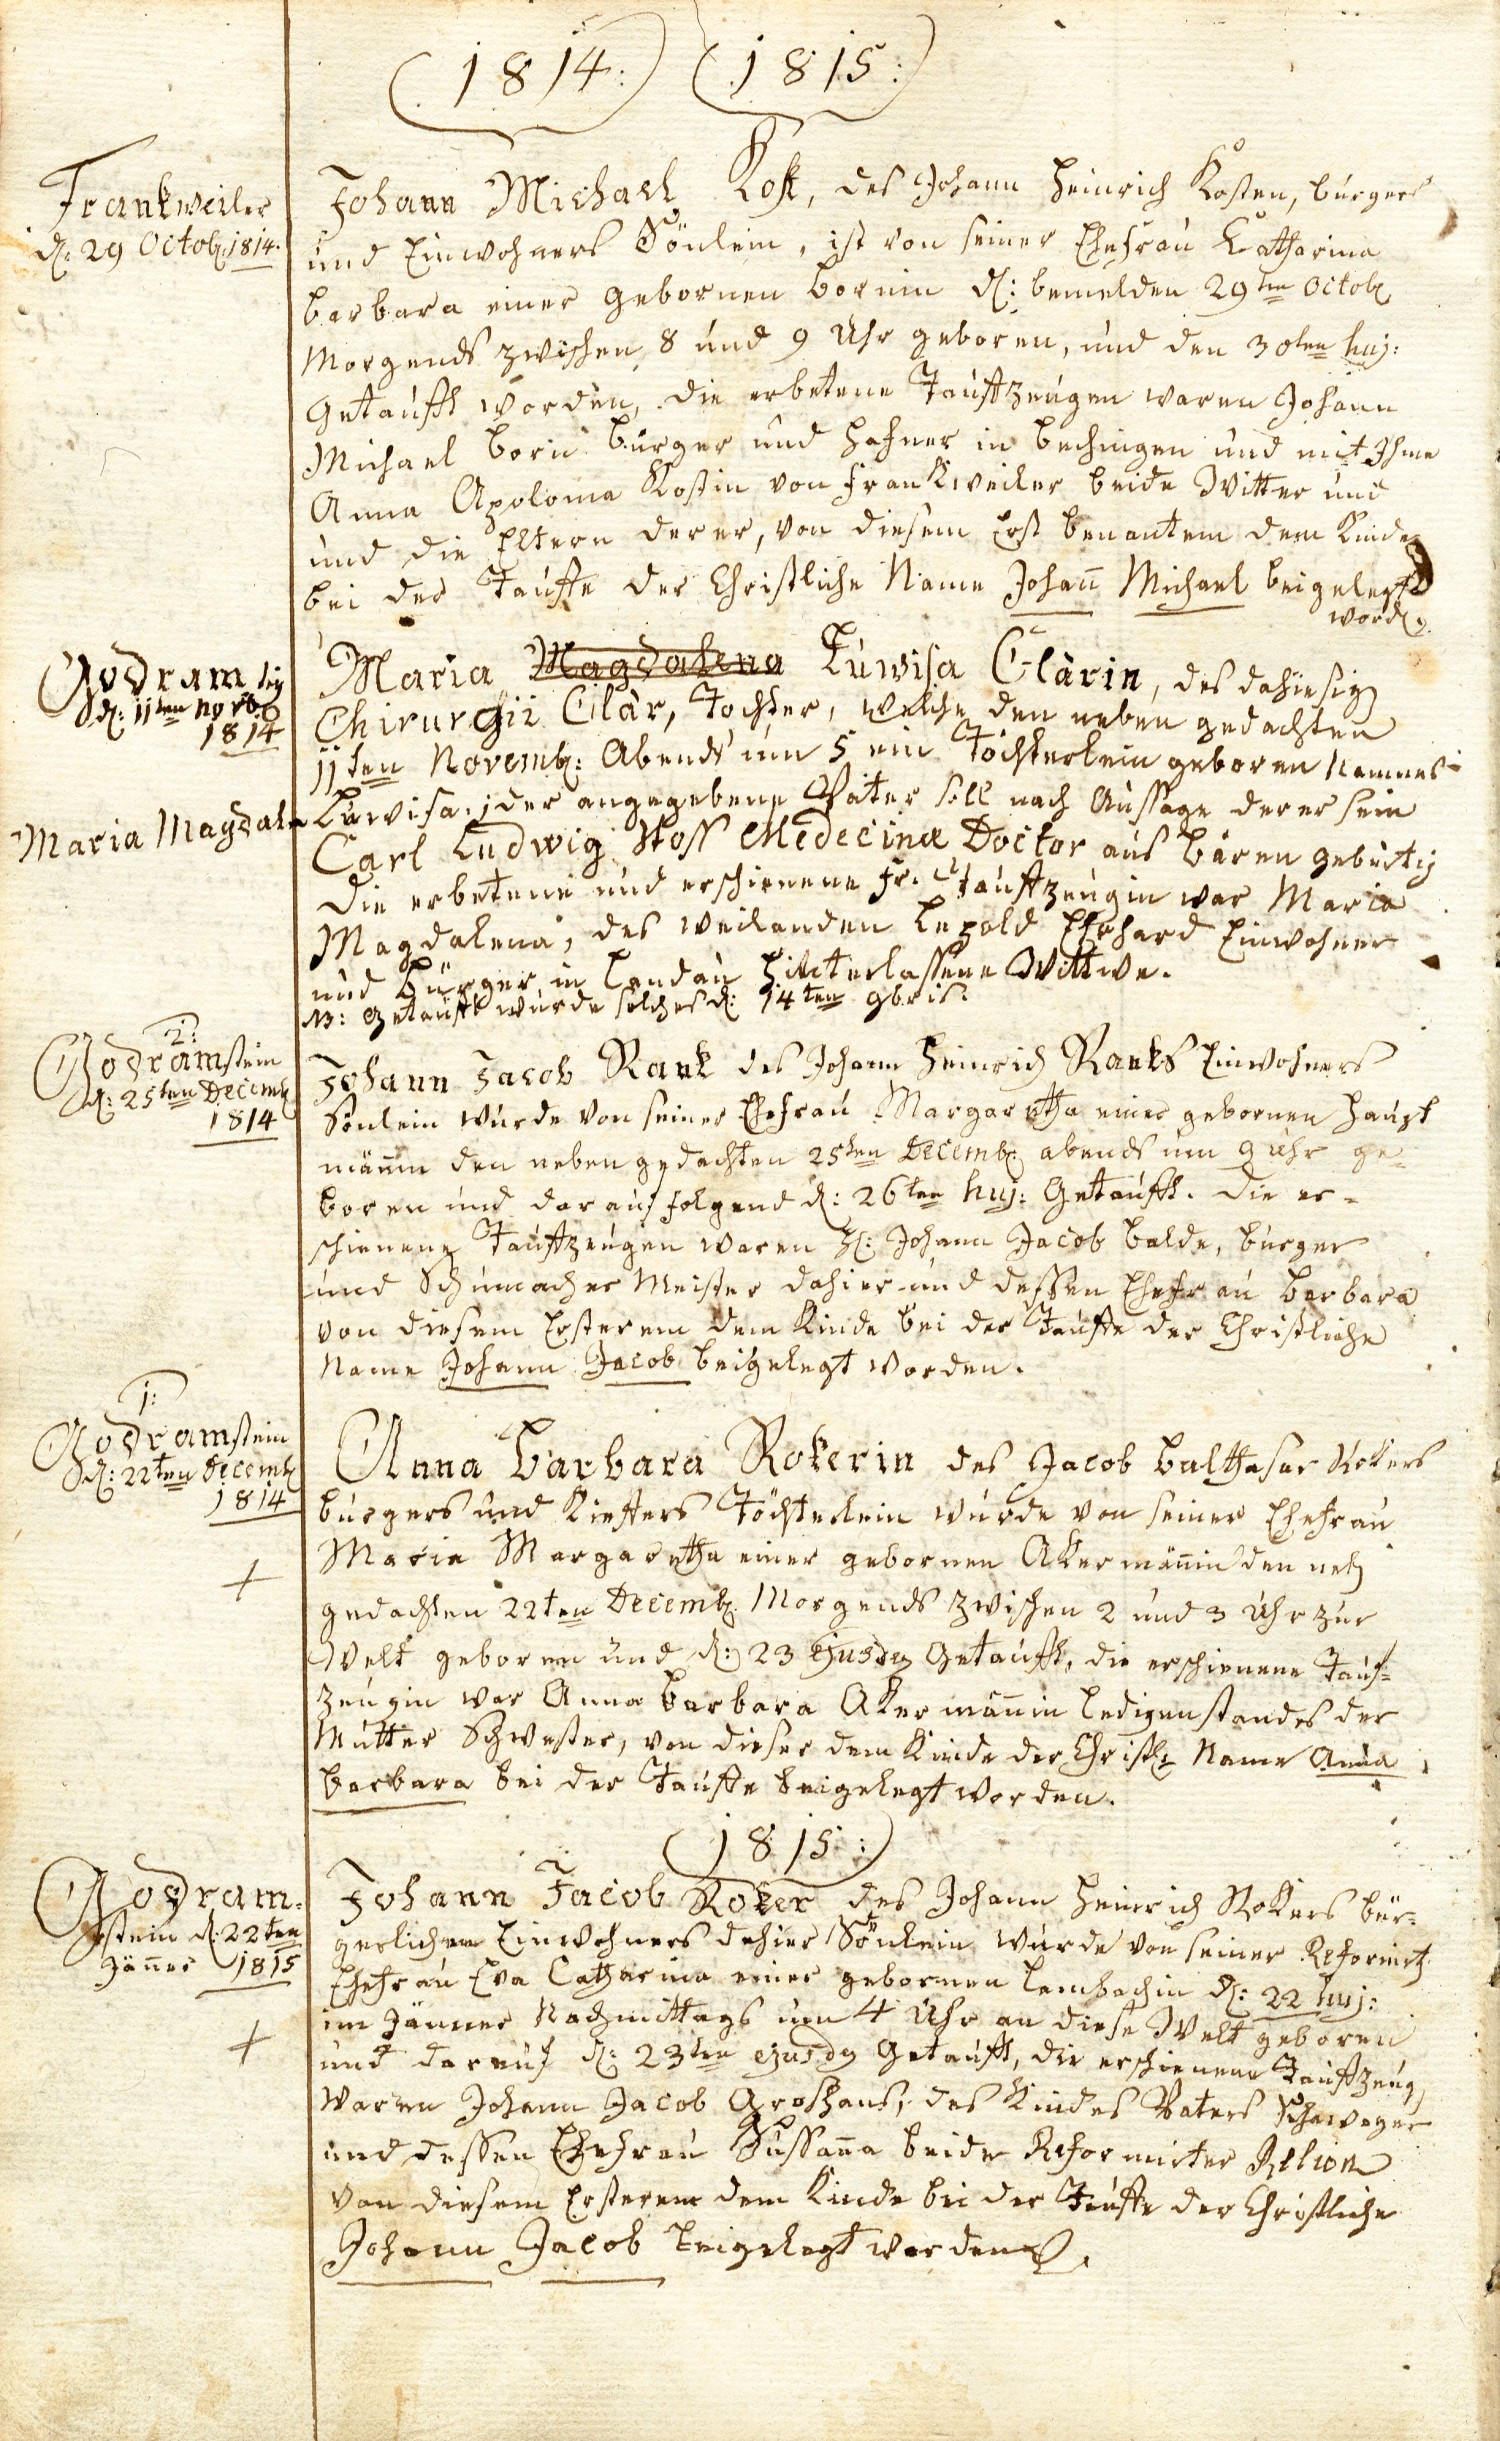 1814: 1815:
Frankweiler
d: 29 Octob: 1814.
Johann Michael Kost, des Johann Heinrich Kosten, burgers
und Einwohners Sönlein, ist von seiner Ehefrau Catharina
barbara einer gebornen bornin d: bemelden 29ten Octob:
Morgends zwischen 8 und 9 Uhr geboren, und den 30ten huj:
Getaufft worden, die erbetene Tauffzeugen waren Johann
Michael born burger und Hafner in bechingen und mit Ihme
Anna Apolonia Kostin von Frankweiler beide Witter und
und die Eltern derer, von diesem Erst benantem dem Kinde
bei der Tauffe der Christliche Name Johann Michael beigelegt
word:
Godramstein
d: 11ten 9brs
1814
Maria Magdal
Maria Magdalena Luwisa Clärin, des dahiesig
Chirurgii Clär, Tochter, welche den neben gedachten
11ten Novemb: Abends um 5 ein Töchterlein geboren Namens
Luwisa; der angegebene Vater soll nach Aussage derer sein
Carl Ludwig Stoss Medecinæ Doctor aus bären gebürtig
Die erbetene und erschienene Fr. Tauffzeugin war Maria
Magdalena, des weilanden Lepold Ehrhard Einwohner
und bürger in Landau hinterlassene Wittwe.
NB: getaufft wurde solches d: 14ten 9bris.
2:
Godramstein
d: 25ten Decemb:
1814
Johann Jacob Rank des Johann Heinrich Ranks Einwohners
Sönlein wurde von seiner Ehefrau Margaretha einer gebornen Haupt
männin den neben gedachten 25ten Decemb: abends um 9 Uhr ge-
boren und darauf folgend d: 26ten huj: Getaufft. Die er-
schienene Tauffzeugen waren H: Johann Jacob balde, burger
und Schumacher Meister dahier und dessen Ehefrau barbara
von diesem Ersterem dem Kinde bei der Tauffe der Christliche
Name Johann Jacob beigelegt worden.
1:
Godramstein
d: 22ten Decemb:
1814
+
Anna barbara Rokerin des Jacob balthasar Rokers
burgers und Kieffers Töchterlein wurde von seiner Ehefrau
Maria Margaretha einer gebornen Akermännin den neb:
gedachten 22ten Decemb: Morgends zwischen 2 und 3 Uhr zur
Welt geboren und d: 23 ejusdem Getaufft, die erschienene Tauf-
zeugin war Anna barbara Akermännin ledigenstandes der
Mutter Schwester, von dieser dem Kinde der Christl: Name Anna
barbara bei der Tauffe beigelegt worden.
1815:
Godram-
stein d: 22ten
Jänner 1815
+
Johann Jacob Roker des Johann Heinrich Rokers bür-
gerlichen Einwohners dahier Sönlein wurde von seiner Reformirt
Ehefrau Eva Catharina einer gebornen Lembachin d: 22 huj:
im Jänner Nachmittags um 4 Uhr an diese Welt geboren
und darauf d: 23ten ejusdem Getaufft, die erschienene Tauffzeug
waren Johann Jacob Groshans, des Kindes Vaters Schwager
und dessen Ehefrau Sussanna beide Reformirter Relion
von diesem Ersterem dem Kinde bei der Tauffe der Christliche
Johann Jacob beigelegt worden.